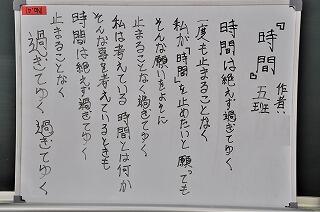 『時間』
作者:五班
時間は絶えず過ぎてゆく
一度も止まることなく
私が「時間」を止めたいと願っても
そんな願いをよそに
止まることなく過ぎてゆく
私は考えている 時間とは何か
そんな事を考えているときも
時間は絶えず過ぎてゆく
止まることなく
過ぎてゆく 過ぎてゆく